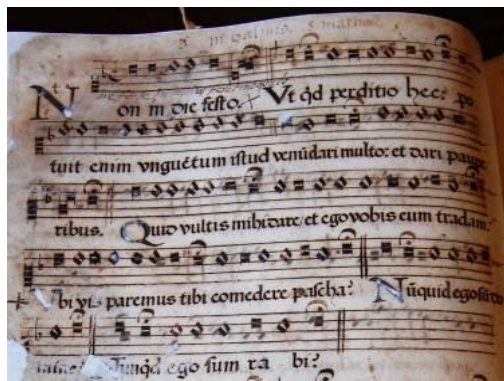 Non in die festo. Vt q̃d perditio hec? po
tuit enim vnguẽtum istud venũdari multo: et dari paupe
ribus. Quid vultis mihi dare, et ego vobis eum tradam?
bi vi paremus tibi comedere pascha? Nũquid ego sũ
Nunq̃d ego sum ra bi?